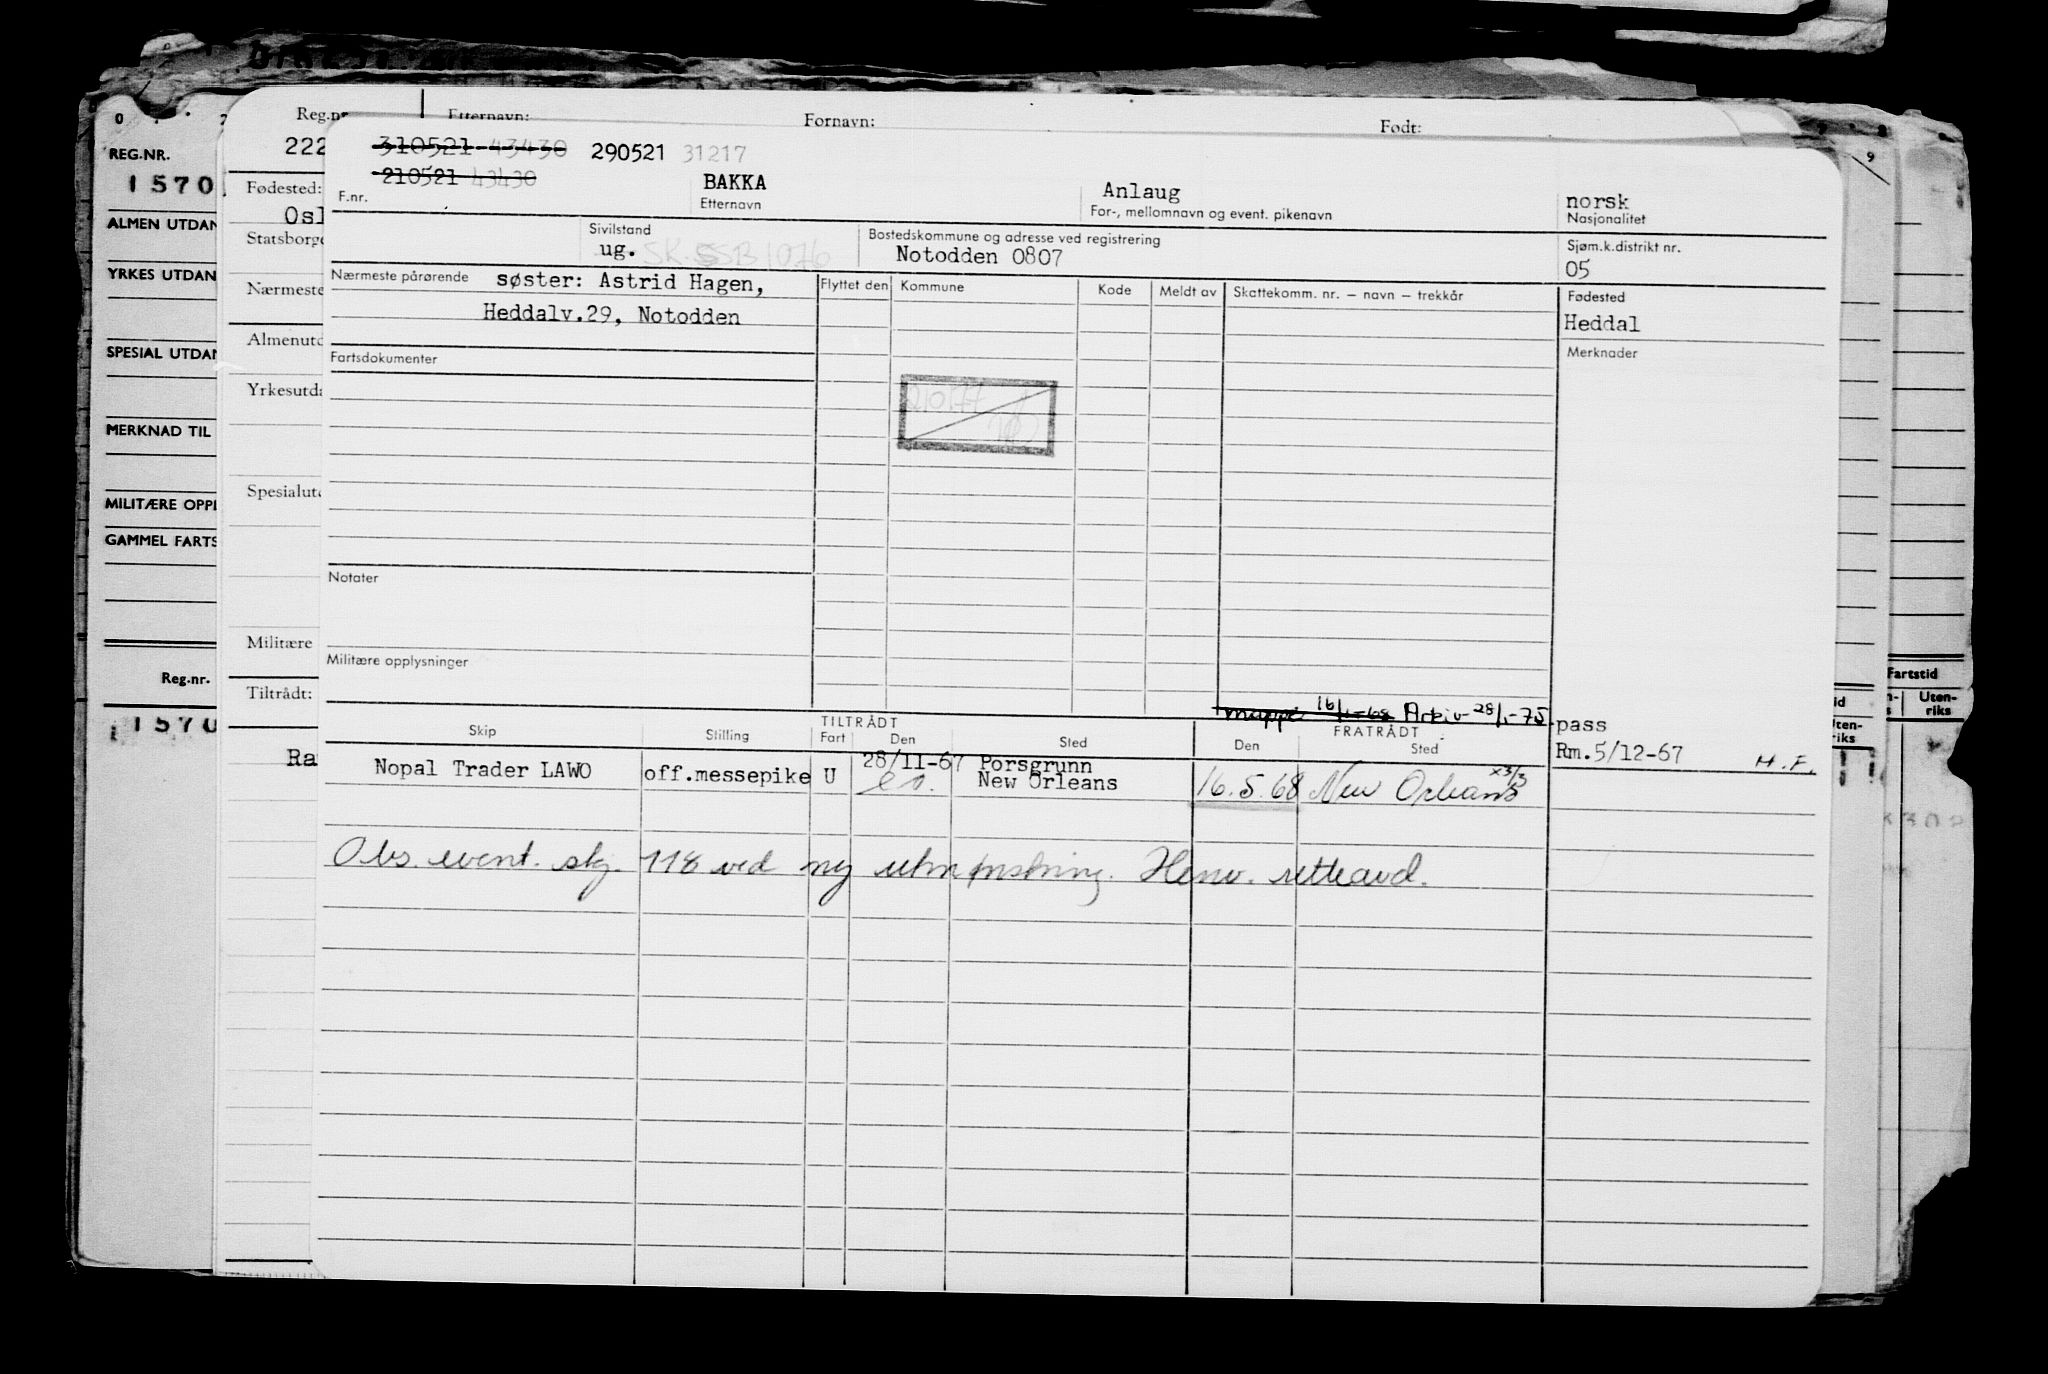 0
REG.NR.
1570
ALMEN UTDAN
YRKES UTDAN
SPESIAL UTDAN
MERKNAD TIL
MILITÆRE OPPL
GAMMEL FARTS
Reg.nr.
1570
Reg.nr
Etternavn:
Fornavn:
Født:
222
Fødested:
Osl
Statsborge
Nærmeste
Almenutd
Yrkesutda
Spesialutd
Militære
Tiltrådt:
Ra
310521 43430 290521 31217
210521 43430
F.nr.
BAKKA
Etternavn
Anlaug
For-, mellomnavn og event. pikenavn
norsk
Nasjonalitet
Sivilstand
ug. SK. SSB 1076
Bostedskommune og adresse ved registrering
Notodden 0807
Sjøm.k.distrikt nr.
05
Nærmeste pårørende søster: Astrid Hagen,
Heddalv.29, Notodden
Flyttet den Kommune Kode Meldt av Skattekomm. nr. – navn – trekkår
Fødested
Heddal
Fartsdokumenter
Merknader
Notater
Militære opplysninger
mappe 16/1-68 Arkiv-28/1-75
pass
TILTRÅDT FRATRÅDT
Skip Stilling Fart Den Sted Den Sted
Rm.5/12-67 H.F.
Nopal Trader LAWO off.messepike U 28/11-67 Porsgrunn
New Orleans 16.5.68 New Orleans
Obs. event. skj. 118 ved ny utmønstring. Henv. retteavd.
9
Fartstid
Uten-
riks
id
Uten-
riks